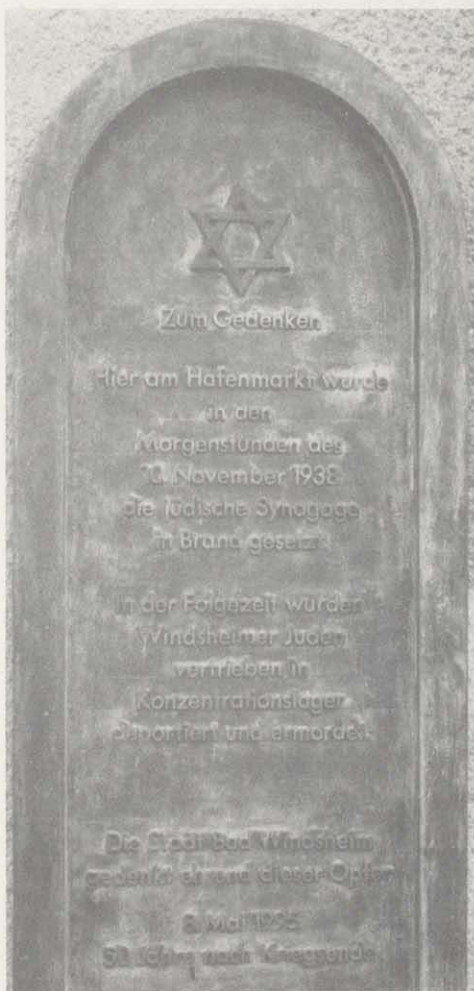 Zum Gedenken
Hier am Hafenmarkt wurde
in den
Morgenstunden des
10. November 1938
die jüdische Synagoge
in Brand gesetzt
In der Folgezeit wurden
Windsheimer Juden
vertrieben, in
Konzentrationslager
deportiert und ermordet.
Die Stadt Bad Windsheim
gedenkt ehrend dieser Opfer
8. Mai 1995
50 Jahre nach Kriegsende